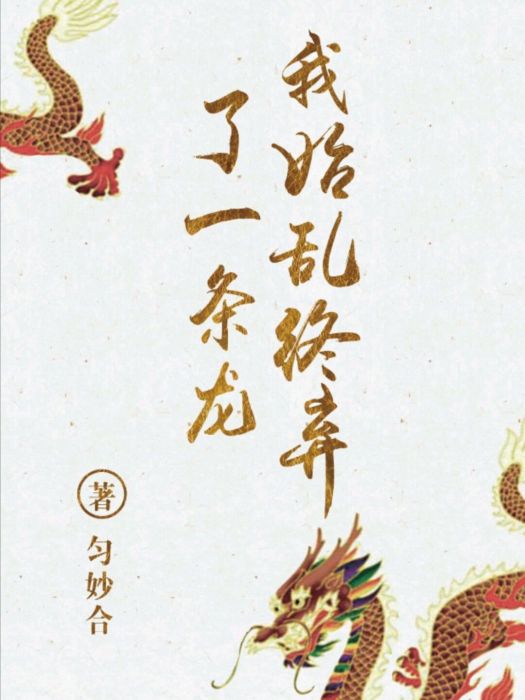 我始乱终弃
了一条龙
著
匀妙合